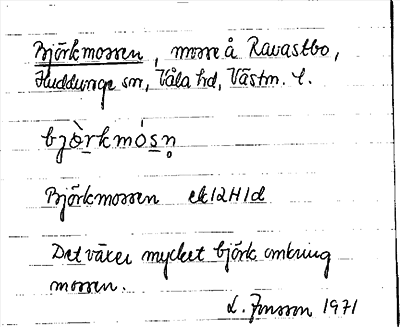 Björkmossen, mosse å Ravastbo,
Huddunge sn, Våla hd, Västm. l.
bjö̀rkmósn̥
Björkmossen ek 12H1d
Det växer mycket björk omkring
mossen.
L. Jonsson 1971